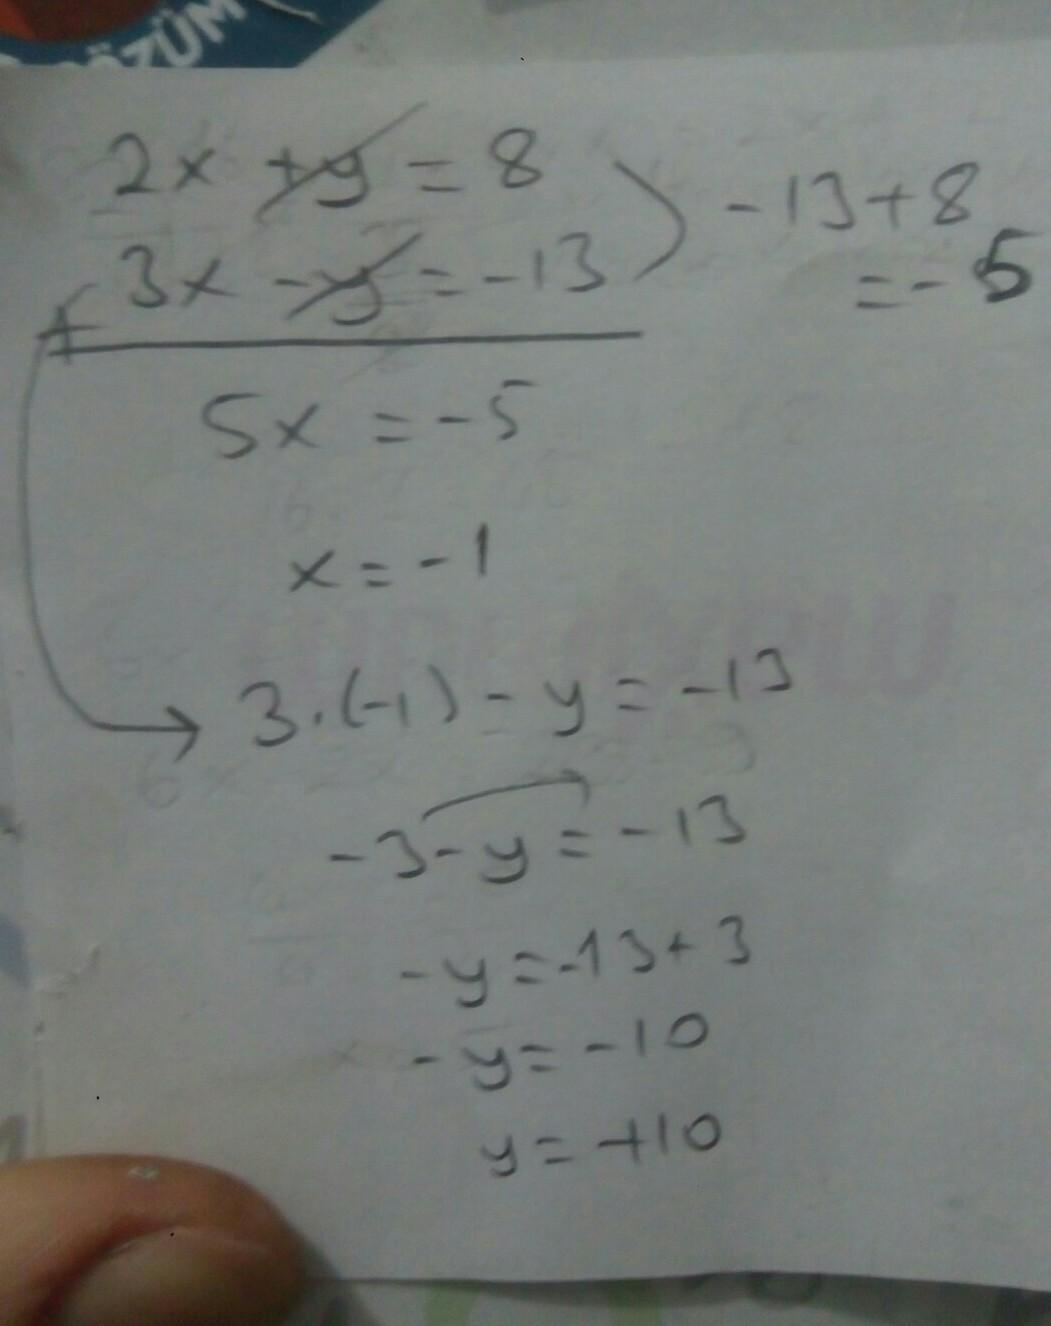 ÇÖZÜM
2x + y = 8
3x - y = -13
+
-13 + 8
= -5
5x = -5
x = -1
3.(-1) - y = -13
-3 - y = -13
-y = -13 + 3
-y = -10
y = +10